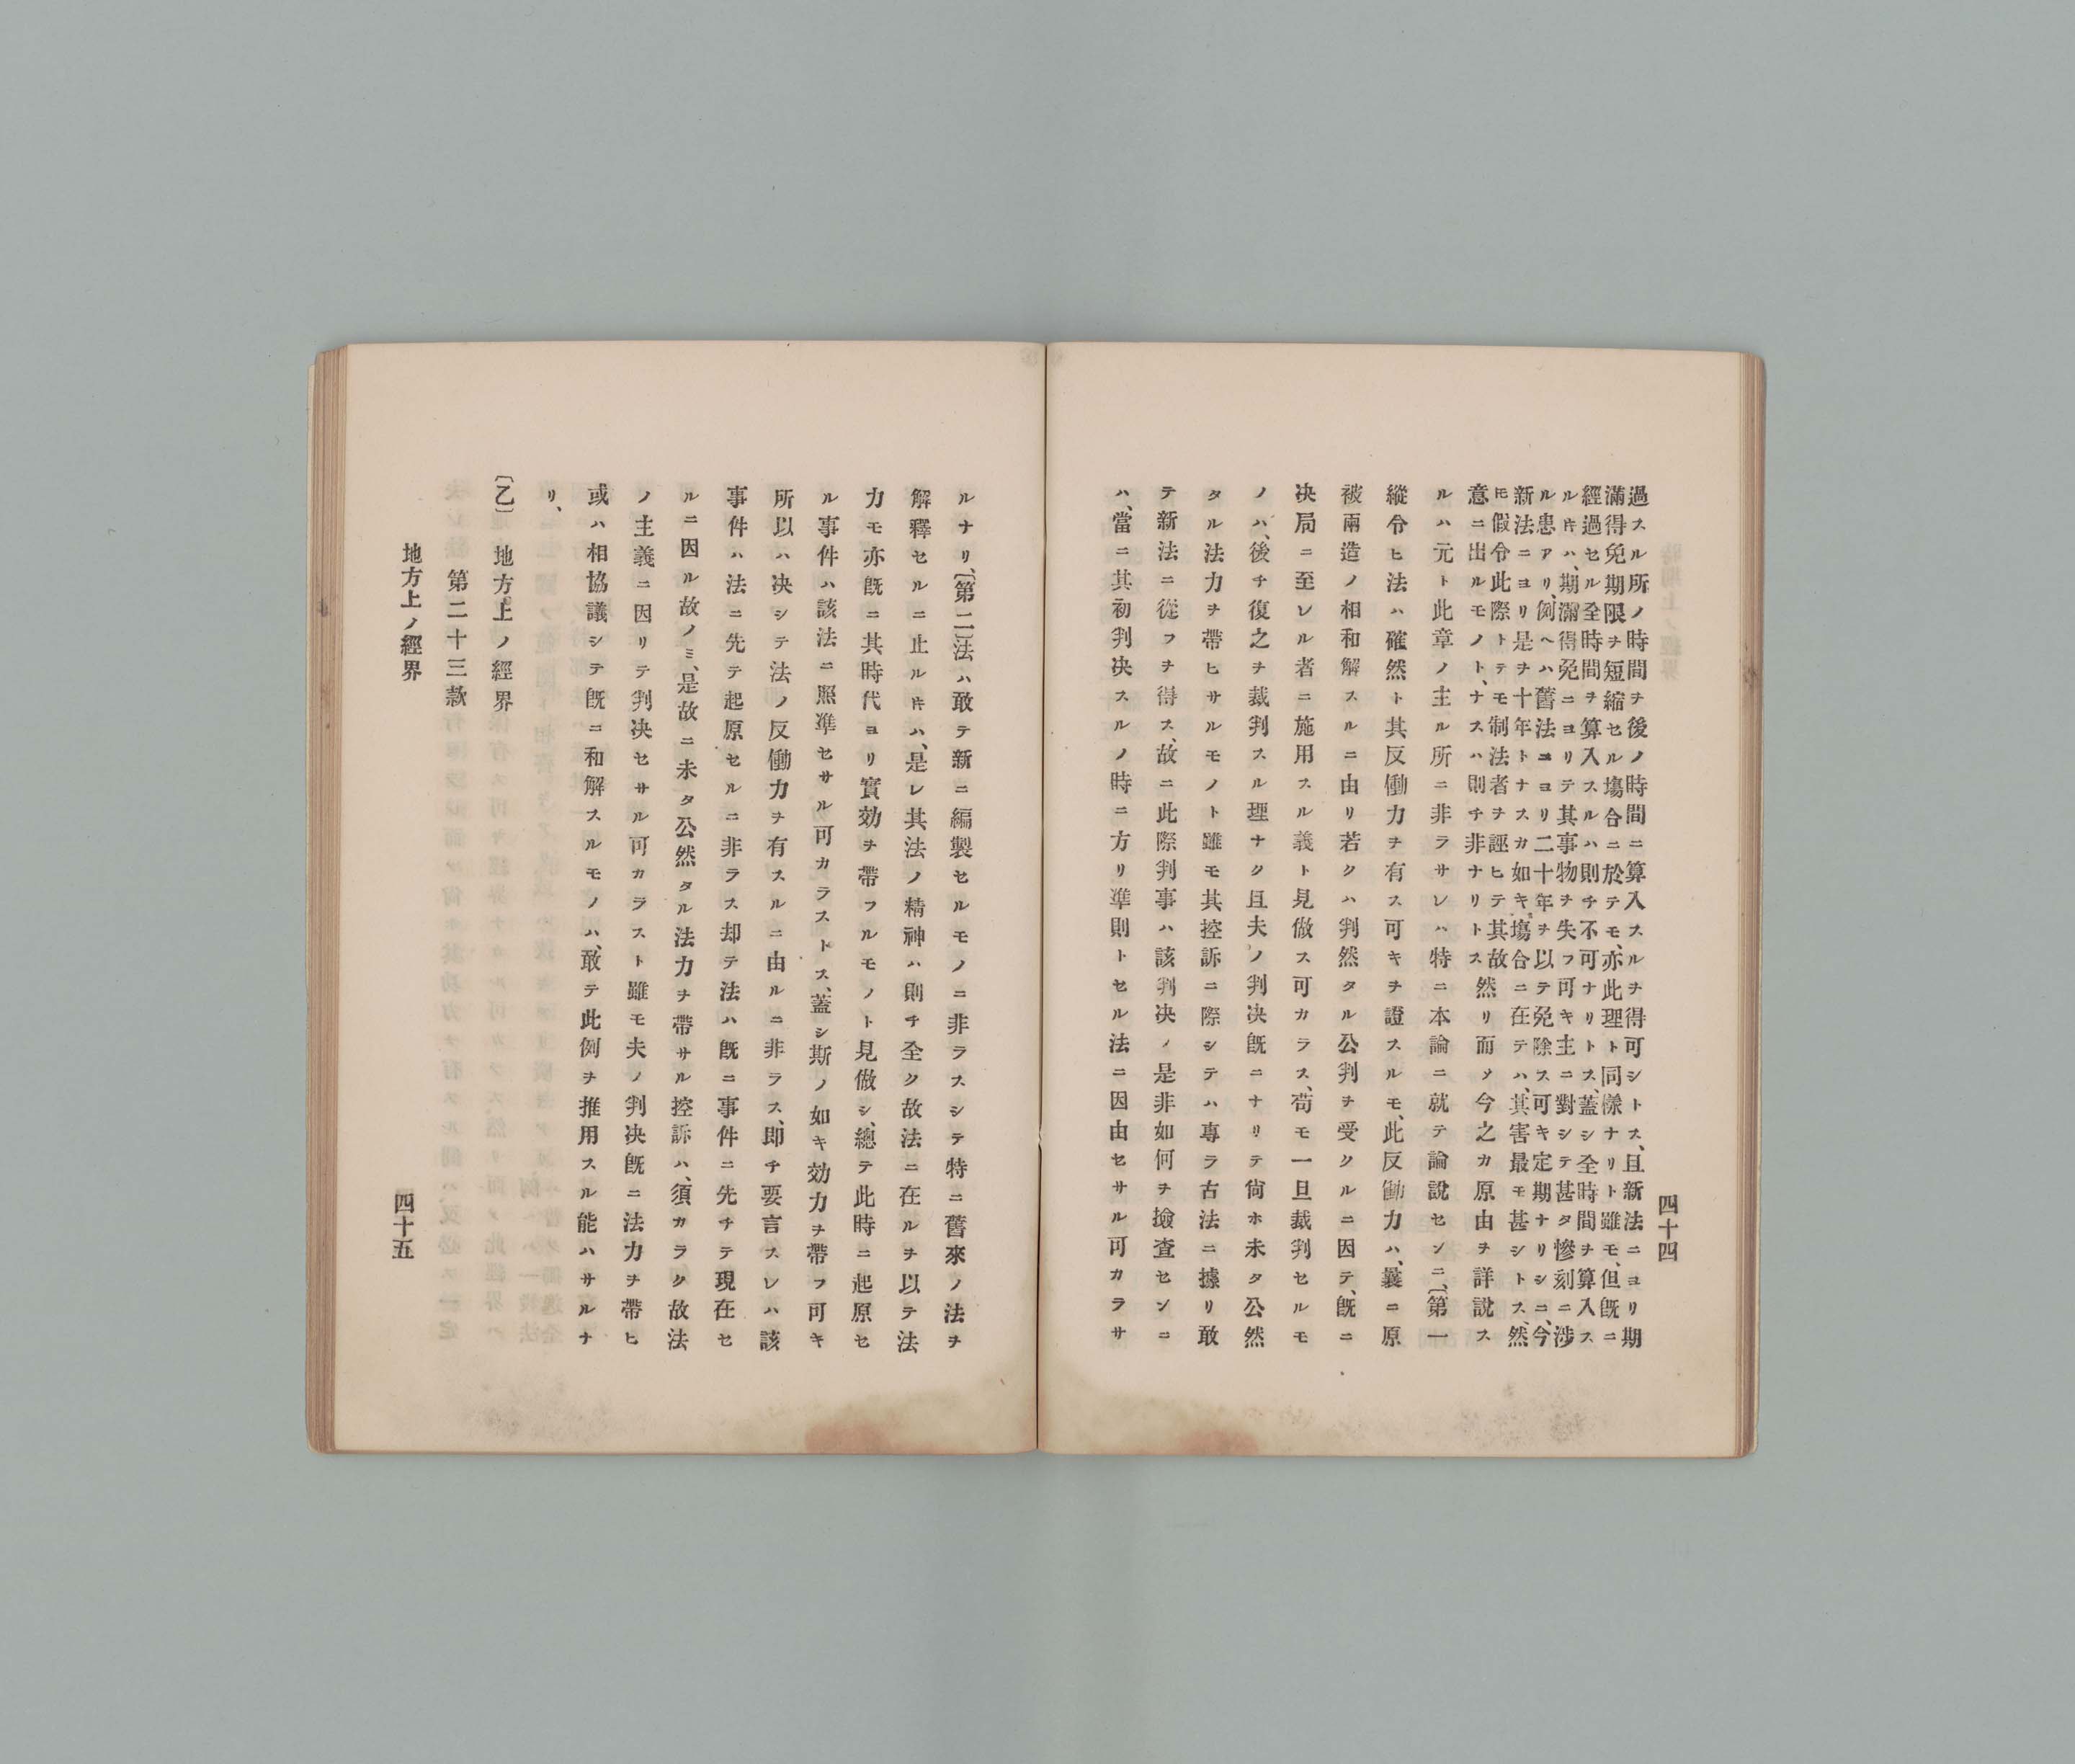 四十四
過スル所ノ時間ヲ後ノ時間ニ算入スルヲ得可シトス、且新法ニヨリ期
滿得免期限ヲ短縮セル塲合ニ於テモ、亦此理ト同樣ナリト雖モ、但既ニ
經過セル全時間ヲ算入スルハ則チ不可ナリトス、蓋シ全時間ヲ算入ス
ルㇳキハ、期滿得免ニヨリテ其事物ヲ失フ可キ主ニ對シテ甚タ慘刻ニ涉
ル患アリ、例ヘハ舊法ニヨリ二十年ヲ以テ免除ス可キ定期ナリシニ、今
新法ニヨリ是ヲ十年トナスカ如キ塲合ニ在テハ、其害最モ甚シトス、然
ㇳモ假令此際トテモ制法者ヲ誣ヒテ其故
意ニ出ルモノト、ナスハ則チ非ナリトス然リ而〆今之カ原由ヲ詳說ス
ルハ元ト此章ノ主ル所ニ非ラサレハ特ニ本論ニ就テ論說センニ、〔第一
縱令ヒ法ハ確然ト其反働力ヲ有ス可キヲ證スルモ、此反働力ハ、曩ニ原
被兩造ノ相和解スルニ由リ若クハ判然タル公判ヲ受クルニ因テ、既ニ
决局ニ至レル者ニ施用スル義ト見做ス可カラス、苟モ一旦裁判セルモ
ノハ、後チ復之ヲ裁判スル理ナク且夫ノ判决既ニナリテ尙ホ未タ公然
タル法力ヲ帶ヒサルモノト雖モ其控訴ニ際シテハ專ラ古法ニ據リ敢
テ新法ニ從フヲ得ス、故ニ此際判事ハ該判决ノ是非如何ヲ撿査センニ
ハ、當ニ其初判决スルノ時ニ方リ準則トセル法ニ因由セサル可カラサ
ルナリ、〔第二〕法ハ敢テ新ニ編製セルモノニ非ラスシテ特ニ舊來ノ法ヲ
解釋セルニ止ルㇳキハ、是レ其法ノ精神ハ則チ全ク故法ニ在ルヲ以テ法
力モ亦既ニ其時代ヨリ實効ヲ帶フルモノト見做シ、總テ此時ニ起原セ
ル事件ハ該法ニ照準セサル可カラストス、蓋シ斯ノ如キ効力ヲ帶フ可キ
所以ハ决シテ法ノ反働力ヲ有スルニ由ルニ非ラス、即チ要言スレハ該
事件ハ法ニ先テ起原セルニ非ラス却テ法ハ既ニ事件ニ先チテ現在セ
ルニ因ル故ノミ、是故ニ未タ公然タル法力ヲ帶サル控訴ハ、須カラク故法
ノ主義ニ因リテ判决セサル可カラスト雖モ夫ノ判决既ニ法力ヲ帶ヒ
或ハ相協議シテ既ニ和解スルモノハ、敢テ此例ヲ推用スル能ハサルナ
リ、
〔乙〕 地方上ノ經界
第二十三款
地方上ノ經界
四十五